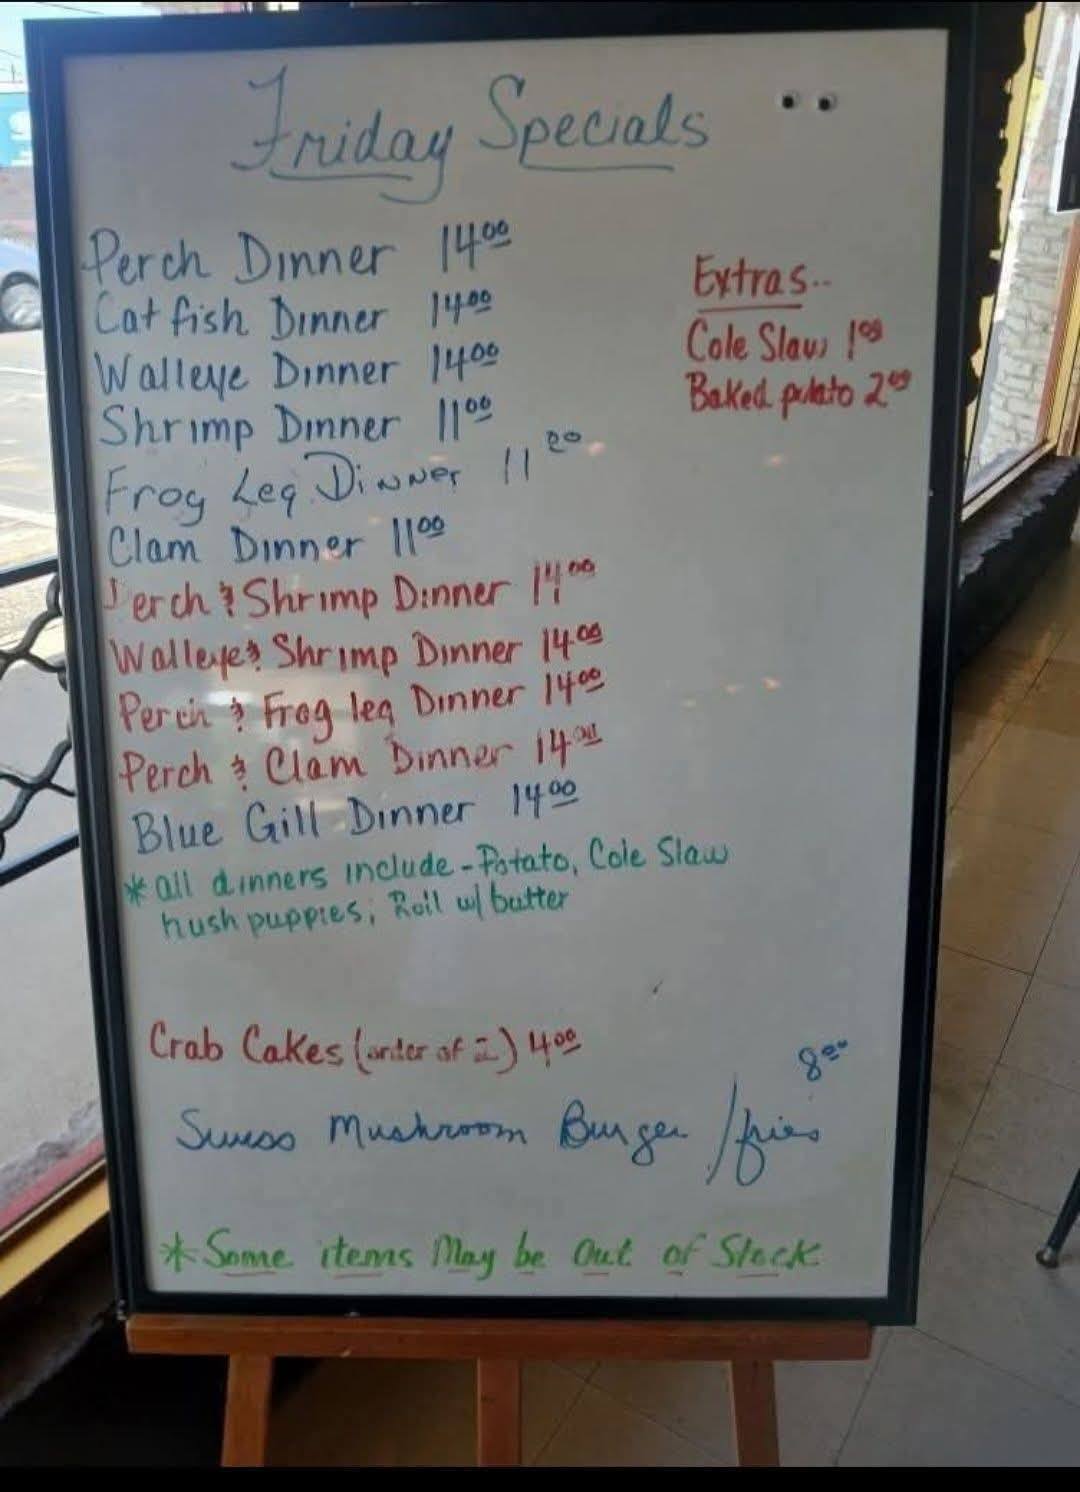 Friday Specials
Perch Dinner 14.00
Cat fish Dinner 14.00
Walleye Dinner 14.00
Shrimp Dinner 11.00
Frog Leg Dinner 11.00
Clam Dinner 11.00
Perch & Shrimp Dinner 14.00
Walleye & Shrimp Dinner 14.00
Perch & Frog leg Dinner 14.00
Perch & Clam Dinner 14.00
Blue Gill Dinner 14.00
* all dinners include - Potato, Cole Slaw
hush puppies, Roll w/ butter
Extras..
Cole Slaw 1.00
Baked potato 2.00
Crab Cakes (order of 2) 4.00
8.00
Swiss Mushroom Burger / fries
* Some items May be Out of Stock